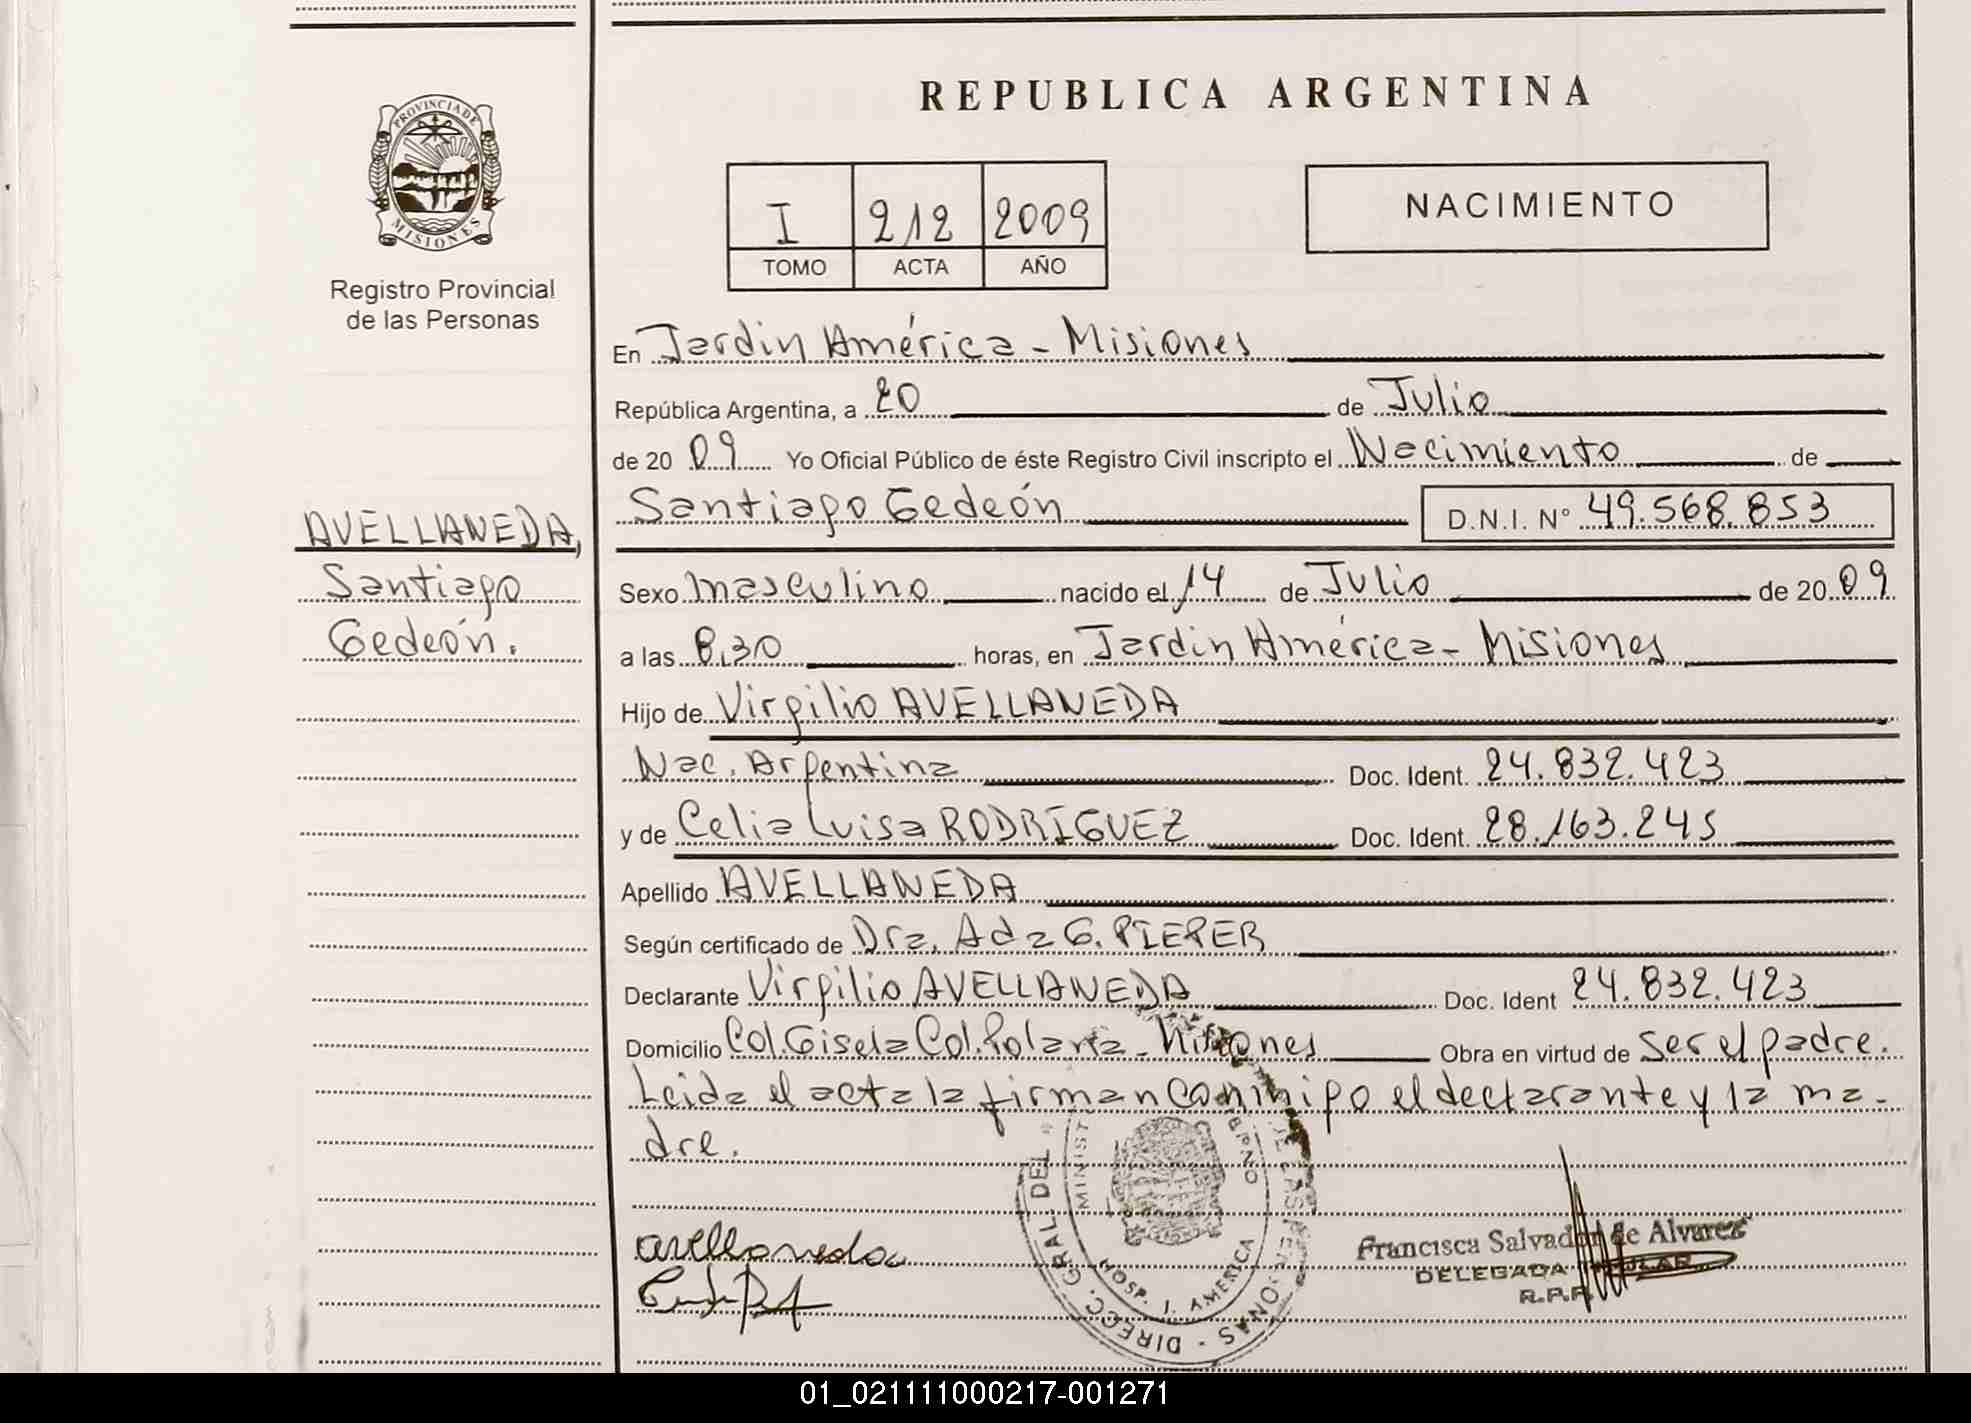 REPUBLICA ARGENTINA
PROVINCIA DE
MISIONES
Registro Provincial
de las Personas
I 212 2009
TOMO ACTA AÑO
NACIMIENTO
En Jardin América - Misiones
República Argentina, a 20 de Julio
de 2009 Yo Oficial Público de éste Registro Civil inscripto el Nacimiento de
Santiago Gedeón D.N.I. N° 49.568.853
AVELLANEDA,
Santiago
Gedeón.
Sexo masculino nacido el 14 de Julio de 2009
a las 8,30 horas, en Jardin América - Misiones
Hijo de Virgilio AVELLANEDA
Nac. Argentina Doc. Ident. 24.832.423
y de Celia Luisa RODRÍGUEZ Doc. Ident. 28.163.245
Apellido AVELLANEDA
Según certificado de Dra. Ada G. PIEPER
Declarante Virgilio AVELLANEDA Doc. Ident 24.832.423
Domicilio Col. Gisela Col. Polana - Misiones Obra en virtud de ser el padre.
Leida el acta la firman conmigo el declarante y la ma-
dre.
avellaneda
DIRECC. GRAL. DEL
DE LAS PERSONAS
MINIST
HOSP. J. AMERICA
Francisca Salvador de Alvarez
DELEGADA TITULAR
R.P.P.
01_021111000217-001271